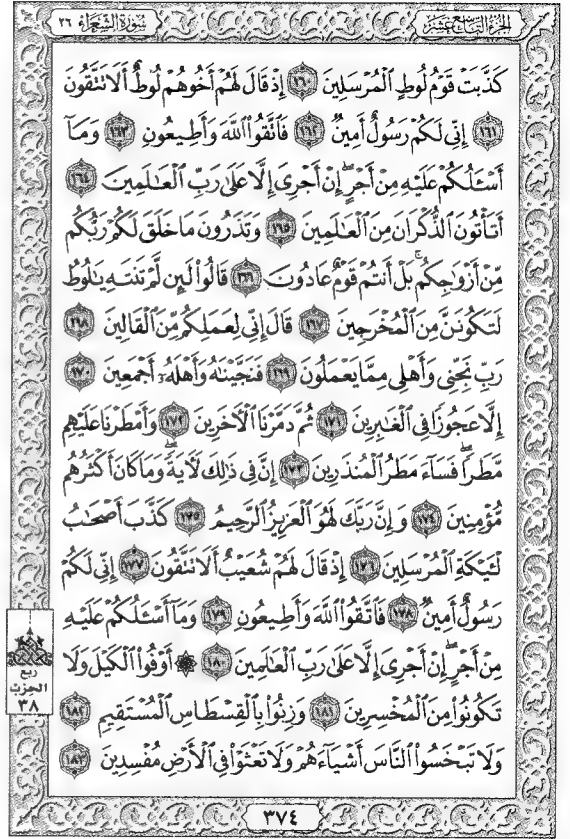 الجزء التاسع عشر
سورة الشعراء ٢٦
كَذَّبَتْ قَوْمُ لُوطٍ الْمُرْسَلِينَ ١٦٠ إِذْ قَالَ لَهُمْ أَخُوهُمْ لُوطٌ أَلَا تَتَّقُونَ
١٦١ إِنِّي لَكُمْ رَسُولٌ أَمِينٌ ١٦٢ فَاتَّقُوا اللَّهَ وَأَطِيعُونِ ١٦٣ وَمَا
أَسْئَلُكُمْ عَلَيْهِ مِنْ أَجْرٍ ۖ إِنْ أَجْرِيَ إِلَّا عَلَىٰ رَبِّ الْعَٰلَمِينَ ١٦٤
أَتَأْتُونَ الذُّكْرَانَ مِنَ الْعَٰلَمِينَ ١٦٥ وَتَذَرُونَ مَا خَلَقَ لَكُمْ رَبُّكُم
مِّنْ أَزْوَٰجِكُم ۚ بَلْ أَنتُمْ قَوْمٌ عَادُونَ ١٦٦ قَالُوا لَئِن لَّمْ تَنتَهِ يَٰلُوطُ
لَتَكُونَنَّ مِنَ الْمُخْرَجِينَ ١٦٧ قَالَ إِنِّي لِعَمَلِكُم مِّنَ الْقَالِينَ ١٦٨
رَبِّ نَجِّنِي وَأَهْلِي مِمَّا يَعْمَلُونَ ١٦٩ فَنَجَّيْنَٰهُ وَأَهْلَهُۥ أَجْمَعِينَ ١٧٠
إِلَّا عَجُوزًا فِي الْغَٰبِرِينَ ١٧١ ثُمَّ دَمَّرْنَا الْآخَرِينَ ١٧٢ وَأَمْطَرْنَا عَلَيْهِم
مَّطَرًا ۖ فَسَاءَ مَطَرُ الْمُنذَرِينَ ١٧٣ إِنَّ فِي ذَٰلِكَ لَآيَةً ۖ وَمَا كَانَ أَكْثَرُهُم
مُّؤْمِنِينَ ١٧٤ وَإِنَّ رَبَّكَ لَهُوَ الْعَزِيزُ الرَّحِيمُ ١٧٥ كَذَّبَ أَصْحَٰبُ
لْـَٔيْكَةِ الْمُرْسَلِينَ ١٧٦ إِذْ قَالَ لَهُمْ شُعَيْبٌ أَلَا تَتَّقُونَ ١٧٧ إِنِّي لَكُمْ
رَسُولٌ أَمِينٌ ١٧٨ فَاتَّقُوا اللَّهَ وَأَطِيعُونِ ١٧٩ وَمَا أَسْئَلُكُمْ عَلَيْهِ
مِنْ أَجْرٍ ۖ إِنْ أَجْرِيَ إِلَّا عَلَىٰ رَبِّ الْعَٰلَمِينَ ١٨٠ ۞ أَوْفُوا الْكَيْلَ وَلَا
تَكُونُوا مِنَ الْمُخْسِرِينَ ١٨١ وَزِنُوا بِالْقِسْطَاسِ الْمُسْتَقِيمِ ١٨٢
وَلَا تَبْخَسُوا النَّاسَ أَشْيَاءَهُمْ وَلَا تَعْثَوْا فِي الْأَرْضِ مُفْسِدِينَ ١٨٣
ربع
الحزب
٣٨
٣٧٤